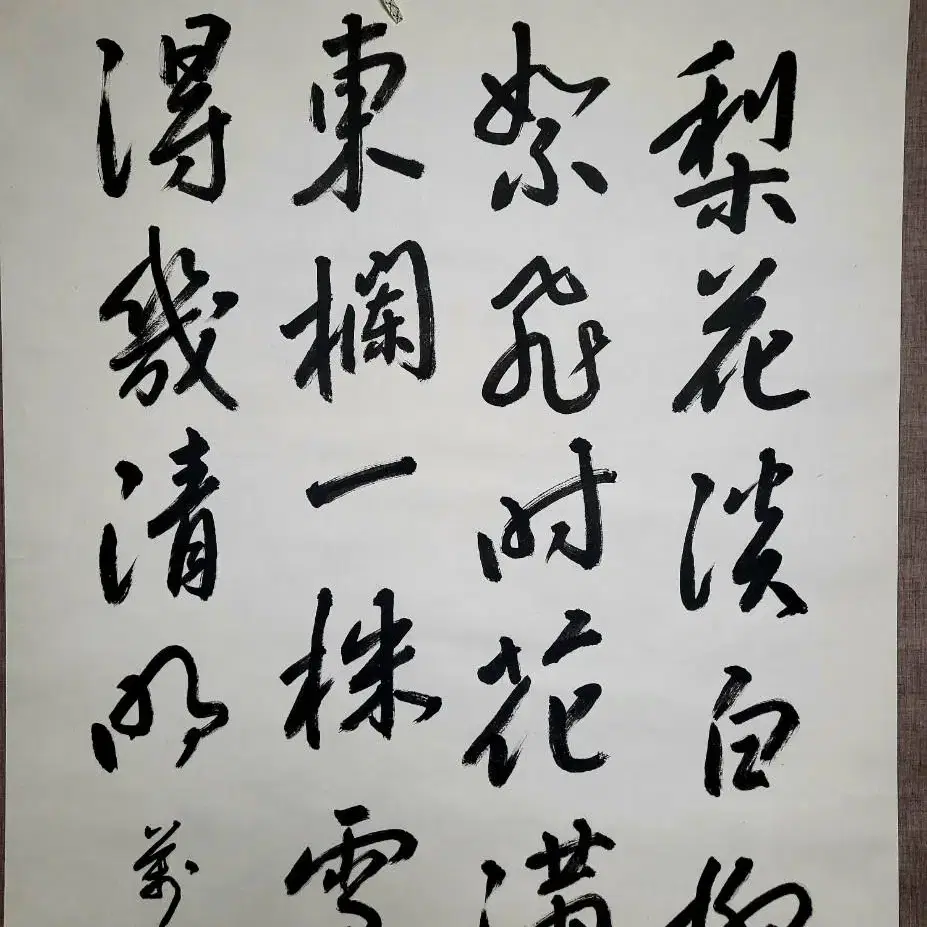 梨花淡白柳
絮飛时花满
東欄一株雪
得幾清明
萬